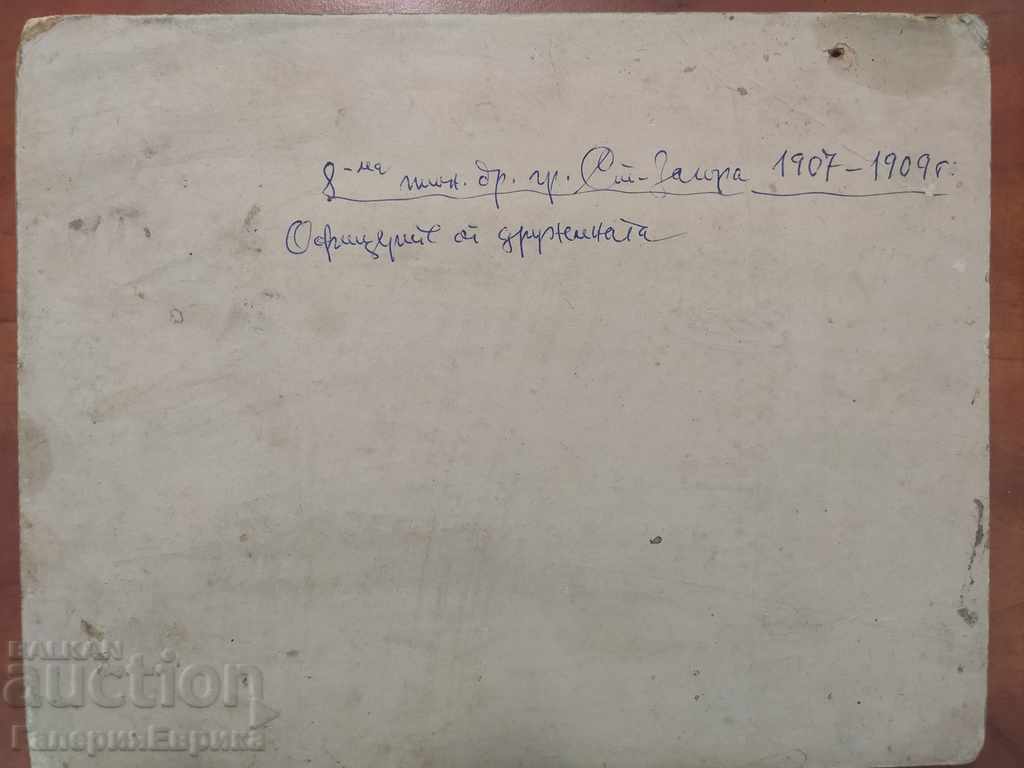 8-ма пион. др. гр. Ст.-Загора 1907-1909 г.
Офицерите от дружината
BALKAN
auction
ГалерияЕврика